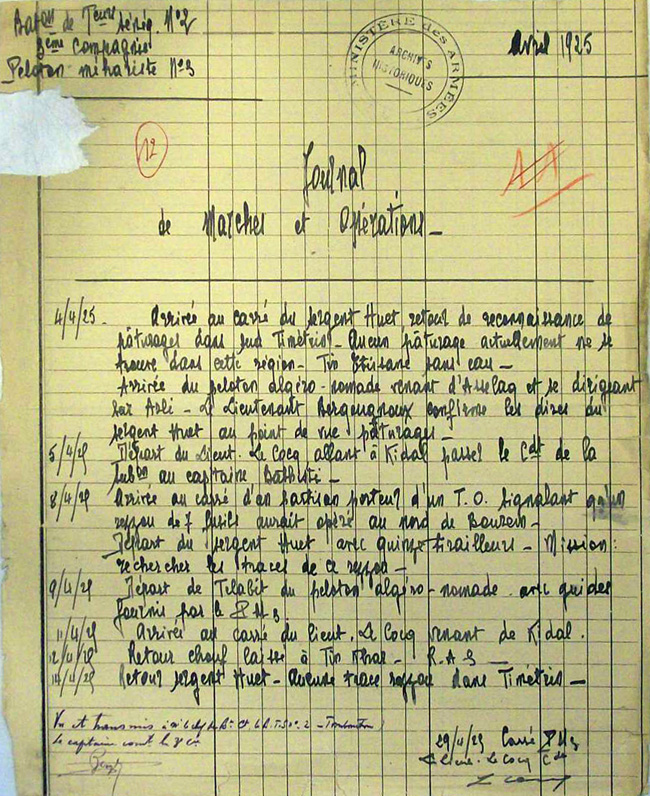 Bat^on de T^eurs Sénég. N°2
3ème Compagnie
Peloton méhariste N°3
MINISTÈRE des ARMÉES
ARCHIVES
HISTORIQUES
Avril 1925
12
Journal
de Marches et Opérations_
4/4/25_ Arrivée au carré du sergent Huet retour de reconnaissance de
pâturages dans sud Timétrin_ Aucun pâturage actuellement ne se
trouve dans cette région_ Tin sans eau_
Arrivée du peloton algéro-nomade venant d'Asselag et se dirigeant
sur _ Le Lieutenant Bergougnoux confirme les dires du
sergent Huet au point de vue pâturages_
5/4/25 Départ du Lieut. Le Cocq allant à Kidal passer le Cdt de la
Subon au capitaine
8/4/25 Arrivée au carré d'un partisan porteur d'un T.O. signalant qu'un
rezzou de 7 fusils aurait opéré au nord de Bourem_
Départ du sergent Huet avec quinze tirailleurs_ Mission:
rechercher les traces de ce rezzou_
9/4/25 Départ de Telabit du peloton algéro-nomade avec guides
fournis par le P M 3
11/4/25 Arrivée au carré du lieut. Le Cocq venant de Kidal.
12/4/25 Retour chouf laissé à Tin _ R.A.S_
14/4/25 Retour sergent Huet_ Aucune trace rezzou dans Timétrin_
Vu et transmis à Mr le Chef de Bon Ct le B.T.S n° 2 - Tombouctou
Le capitaine comt la 3e Cie
29/4/25 Carré P M 3
Le Lieut. Le Cocq Cdt